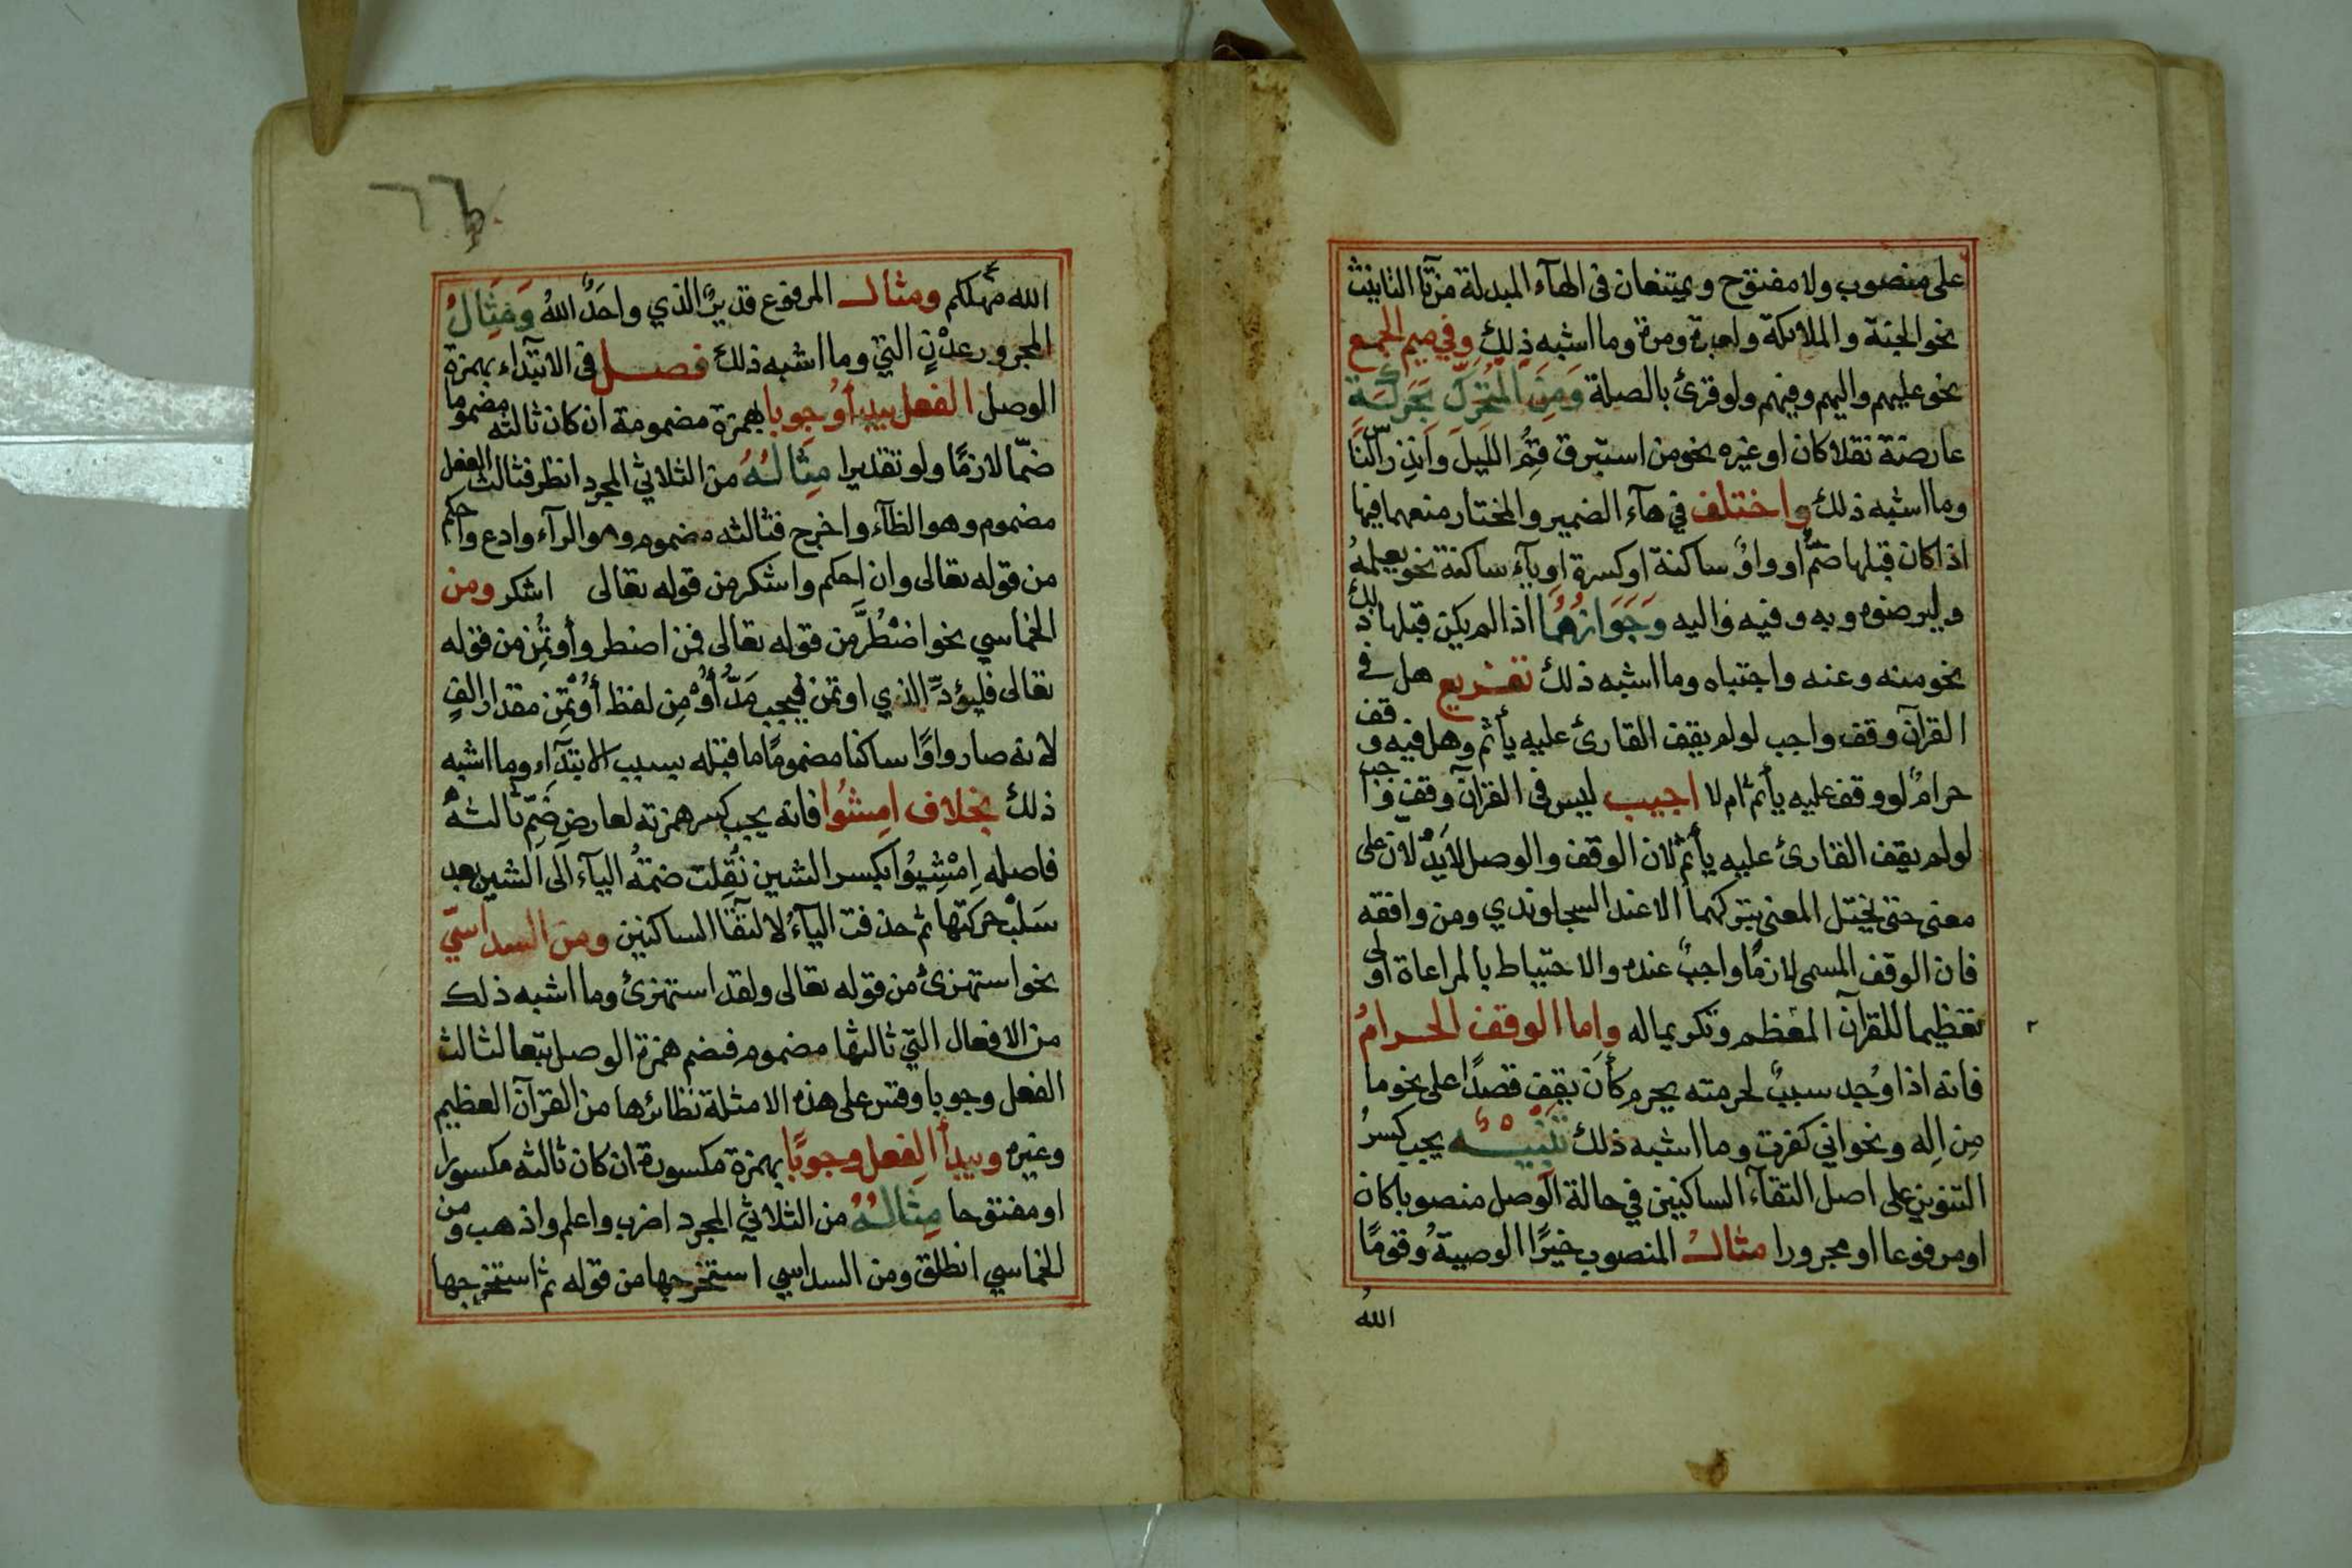 على منصوب ولا مفتوح ويمتنعان فى الهآء المبدلة من تآ التانيث
نحو الجنة والملائكة ولعبرة ومرة وما اشبه ذلك وفي ميم الجمع
نحو عليهم واليهم وفيهم ولو قرئ بالصلة وَمِنَ الْمُتَحَرِّكِ بِحَرَكَةٍ
عارضة نقلا كان او غيره نحو من استبرق قُمِ الليلَ وَاَنذِرِ النَّاسَ
وما اشبه ذلك واختلف في هآء الضمير والمختار منعهما فيها
اذا كان قبلها ضمٌّ او واوٌ ساكنة او كسرة او يآء ساكنة نحو يعلمهُ
وليرضوه وبه وفيه واليه وَجَوَازُهُمَا اذا لم يكن قبلها ذلك
نحو منه وعنه واجتباه وما اشبه ذلك تفريع هل في
القرآن وقف واجب لو لم يقف القارئ عليه يأثم وهل فيه وقف
حرامٌ لو وقف عليه يأثم ام لا اجيب ليس فى القرآن وقف واجب
لو لم يقف القارئ عليه يأثم لان الوقف والوصل لا يَدُلّان على
معنى حتى يختل المعنى بتركهما الا عند السجاوندي ومن وافقه
فان الوقف المسمى لازمًا واجبٌ عنده والاحتياط بالمراعاة اولى
تعظيما للقرآن المعظم وتكريما له واما الوقف الحرامُ
فانه اذا وُجد سببٌ لحرمته يحرم كأن يقف قصدًا على نحو ما
مِن اِله ونحو اني كفرت وما اشبه ذلك تَنْبِيْهٌ يجب كسرُ
التنوين على اصل التقآء الساكنين في حالة الوصل منصوبا كان
او مرفوعا او مجرورا مثالُ المنصوب خيرًا الوصيةُ وقومًا
اللهُ
الله مهلكهم ومثال المرفوع قديرٌ الذي واحَدٌ اللهُ وَمِثَالُ
المجرور عدْنٍ التي وما اشبه ذلك فصل فى الابتدآء بهمزة
الوصل الفعل يبدأ وُجوبا بهمزة مضمومة ان كان ثالثه مضموما
ضمّا لازمًا ولو تقديرا مِثَالُهُ من الثلاثي المجرد انظر فثالث الفعل
مضموم وهو الظآء واخرج فثالثه مضموم وهو الرآء وادع واحكم
من قوله تعالى وان احكم واشكر من قوله تعالى اشكر ومن
الخماسي نحو اضْطُرَّ من قوله تعالى فمن اضطر وأوتُمِن من قوله
تعالى فليؤدّ الذي اوتمن فيجب مَدُّ أُوْ مِن لفظ أُوْتُمِن مقدار الفٍ
لانه صار واوًا ساكنا مضمومًا ما قبله بسبب الابتدآء وما اشبه
ذلك بخلاف امشُوا فانه يجب كسر همزته لعارض ضَمِّ ثالثهْ
فاصله اِمْشِيُوا بكسر الشين نُقِلت ضمةُ اليآء الى الشين بعد
سَلْب حركتها ثم حذفت اليآءُ لالتقآ الساكنين ومن السداسيّ
نحو استهزئ من قوله تعالى ولقد استهزئ وما اشبه ذلك
من الافعال التي ثالثها مضموم فيضم همزة الوصل تبعا لثالث
الفعل وجوبا وقس على هذه الامثلة نظائرها من القرآن العظيم
وغيره ويبدأ الفعل وجوبًا بهمزة مكسورة ان كان ثالثه مكسورا
او مفتوحا مِثَالُهُ من الثلاثي المجرد اضرب واعلم واذهب ومن
الخماسي انطلق ومن السداسي استخرجها من قوله ثم استخرجها